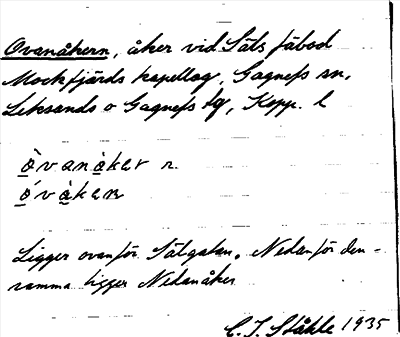 Ovanåkern, åker vid Säls fäbod
Mockfjärds kapellag, Gagnefs sn,
Leksands o Gagnefs tg, Kopp. l
òvanàker n.
óvàken
Ligger ovanför Sälgatan. Nedanför den-
samma ligger Nedanåker
C. I. Ståhle 1935